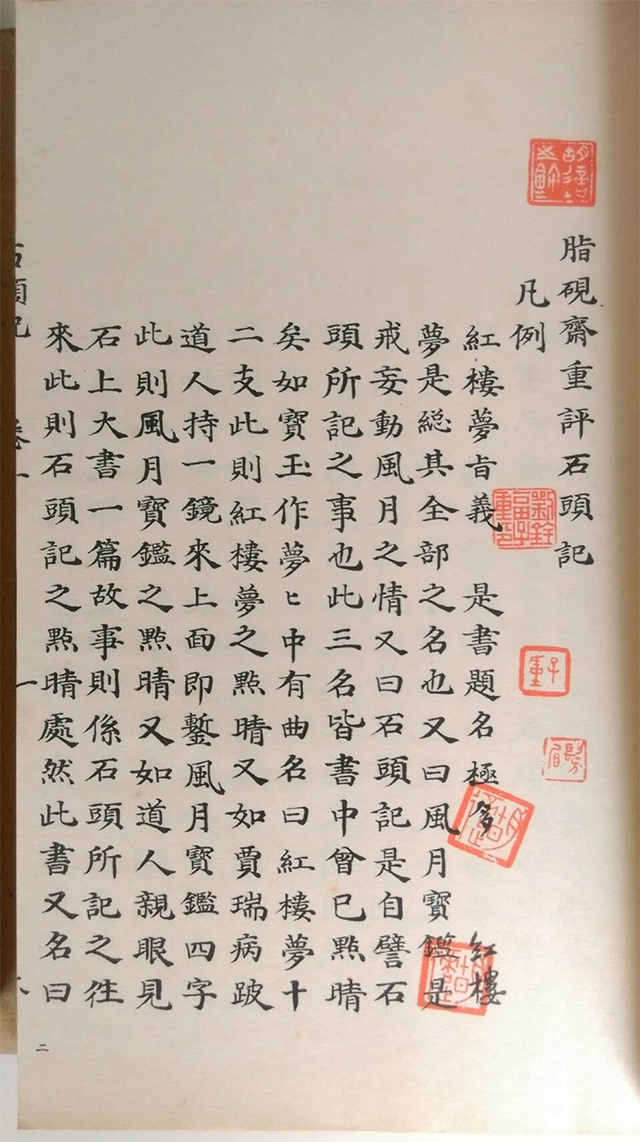 脂硯齋重評石頭記
凡例
紅樓夢旨義　是書題名極多　紅樓
夢是総其全部之名也又曰風月寶鑑是
戒妄動風月之情又曰石頭記是自譬石
頭所記之事也此三名皆書中曾已點晴
矣如寶玉作夢ヒ中有曲名曰紅樓夢十
二支此則紅樓夢之點晴又如賈瑞病跛
道人持一鏡來上面即鏨風月寶鑑四字
此則風月寶鑑之點晴又如道人親眼見
石上大書一篇故事則係石頭所記之往
來此則石頭記之點晴處然此書又名曰
石頭記　卷一　一
二
劉銓畐子重印
子重
髣眉